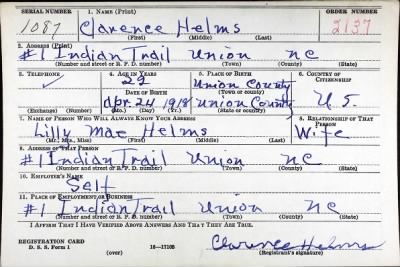 SERIAL NUMBER 1. NAME (Print) ORDER NUMBER
1087 Clarence Helms 2137
(First) (Middle) (Last)
2. ADDRESS (Print)
#1 Indian Trail Union NC
(Number and street or R. F. D. number) (Town) (County) (State)
3. TELEPHONE 4. AGE IN YEARS 5. PLACE OF BIRTH 6. COUNTRY OF CITIZENSHIP
22 Union County
(Town or county)
DATE OF BIRTH
Apr. 24 1918 Union County U.S.
(Exchange) (Number) (Mo.) (Day) (Yr.) (State or country)
7. NAME OF PERSON WHO WILL ALWAYS KNOW YOUR ADDRESS 8. RELATIONSHIP OF THAT PERSON
Lilly Mae Helms Wife
(Mr., Mrs., Miss) (First) (Middle) (Last)
9. ADDRESS OF THAT PERSON
#1 Indian Trail Union NC
(Number and street or R. F. D. number) (Town) (County) (State)
10. EMPLOYER'S NAME
Self
11. PLACE OF EMPLOYMENT OR BUSINESS
#1 Indian Trail Union NC
(Number and street or R. F. D. number) (Town) (County) (State)
I AFFIRM THAT I HAVE VERIFIED ABOVE ANSWERS AND THAT THEY ARE TRUE.
REGISTRATION CARD
D. S. S. Form 1 16—17105 Clarence Helms
(over) (Registrant's signature)